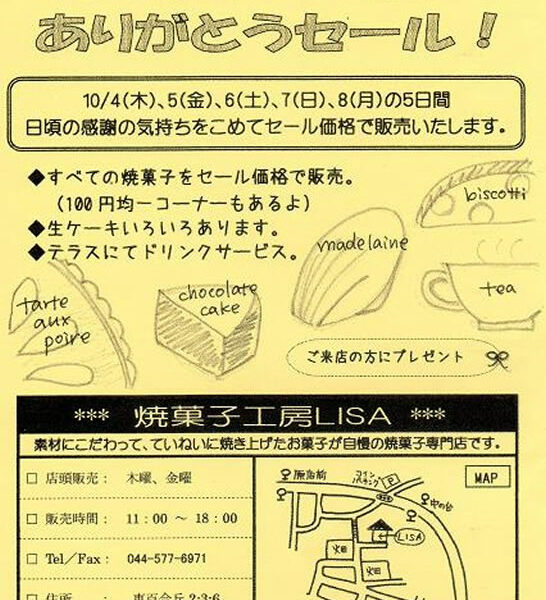 ありがとうセール!
10/4(木)、5(金)、6(土)、7(日)、8(月)の5日間
日頃の感謝の気持ちをこめてセール価格で販売いたします。
◆すべての焼菓子をセール価格で販売。
(100円均一コーナーもあるよ)
◆生ケーキいろいろあります。
◆テラスにてドリンクサービス。
biscotti
madelaine
tea
chocolate
cake
tarte
aux
poire
ご来店の方にプレゼント
*** 焼菓子工房LISA ***
素材にこだわって、ていねいに焼き上げたお菓子が自慢の焼菓子専門店です。
□ 店頭販売: 木曜、金曜
□ 販売時間: 11:00 ~ 18:00
□ Tel/Fax: 044-577-6971
□ 住所 : 東百合丘 2-3-6
MAP
コイン
パーキング
P
LISA
畑
畑